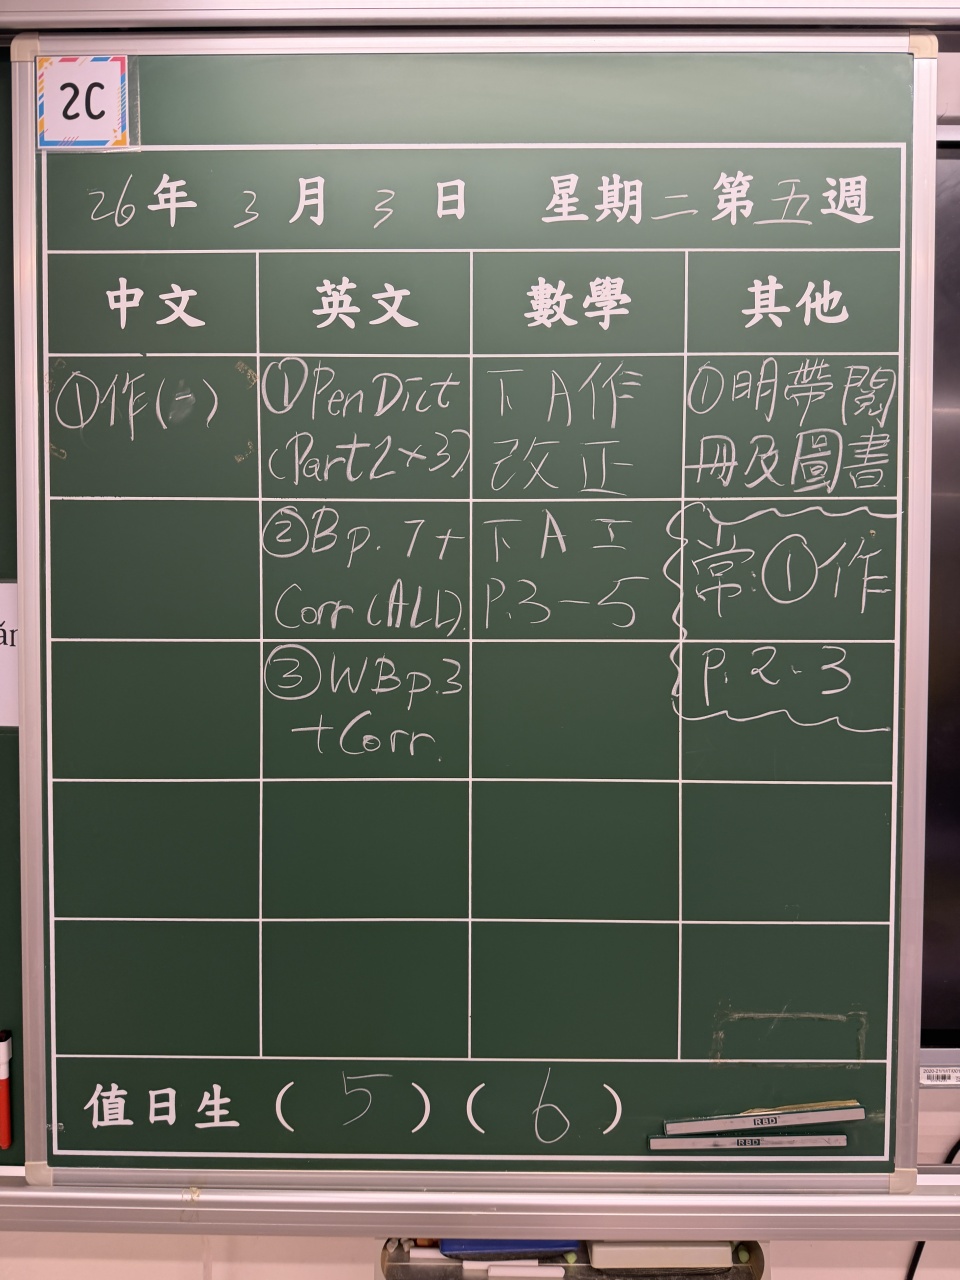 2C
26年 3月 3日 星期二第五週
中文 英文 數學 其他
①作(一)
①Pen Dict
(Part 2×3)
下A作
改正
①明帶閱
冊及圖書
②B p. 7 +
Corr (ALL).
下A工
P.3-5
常:①作
③WB p.3
+ Corr.
P. 2-3
值日生 ( 5 ) ( 6 )
RBD
RBD